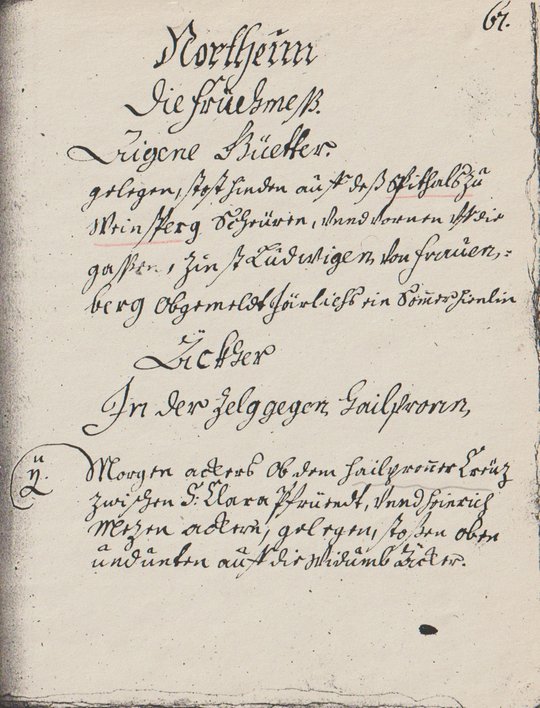 67.
Northeim
Die Früehmeß.
Aigene Güetter.
gelegen, stost hinden auff deß Spithals zu
Weinsperg Scheüren, vnnd vornen vf die
gassen, Zinst Ludwigen von Frauen=
berg obgemeldt Järlichs ein Sommerhienlin
Äckher
In der Zelg gegen Hailpronn
ij. Morgen ackers ob dem Hailpronner Creüz
zwischen S: Clara Pfrüendt, vnnd Heinrich
Mezen ackern, gelegen, stoßen oben
und unten auff die Widumb Äcker.